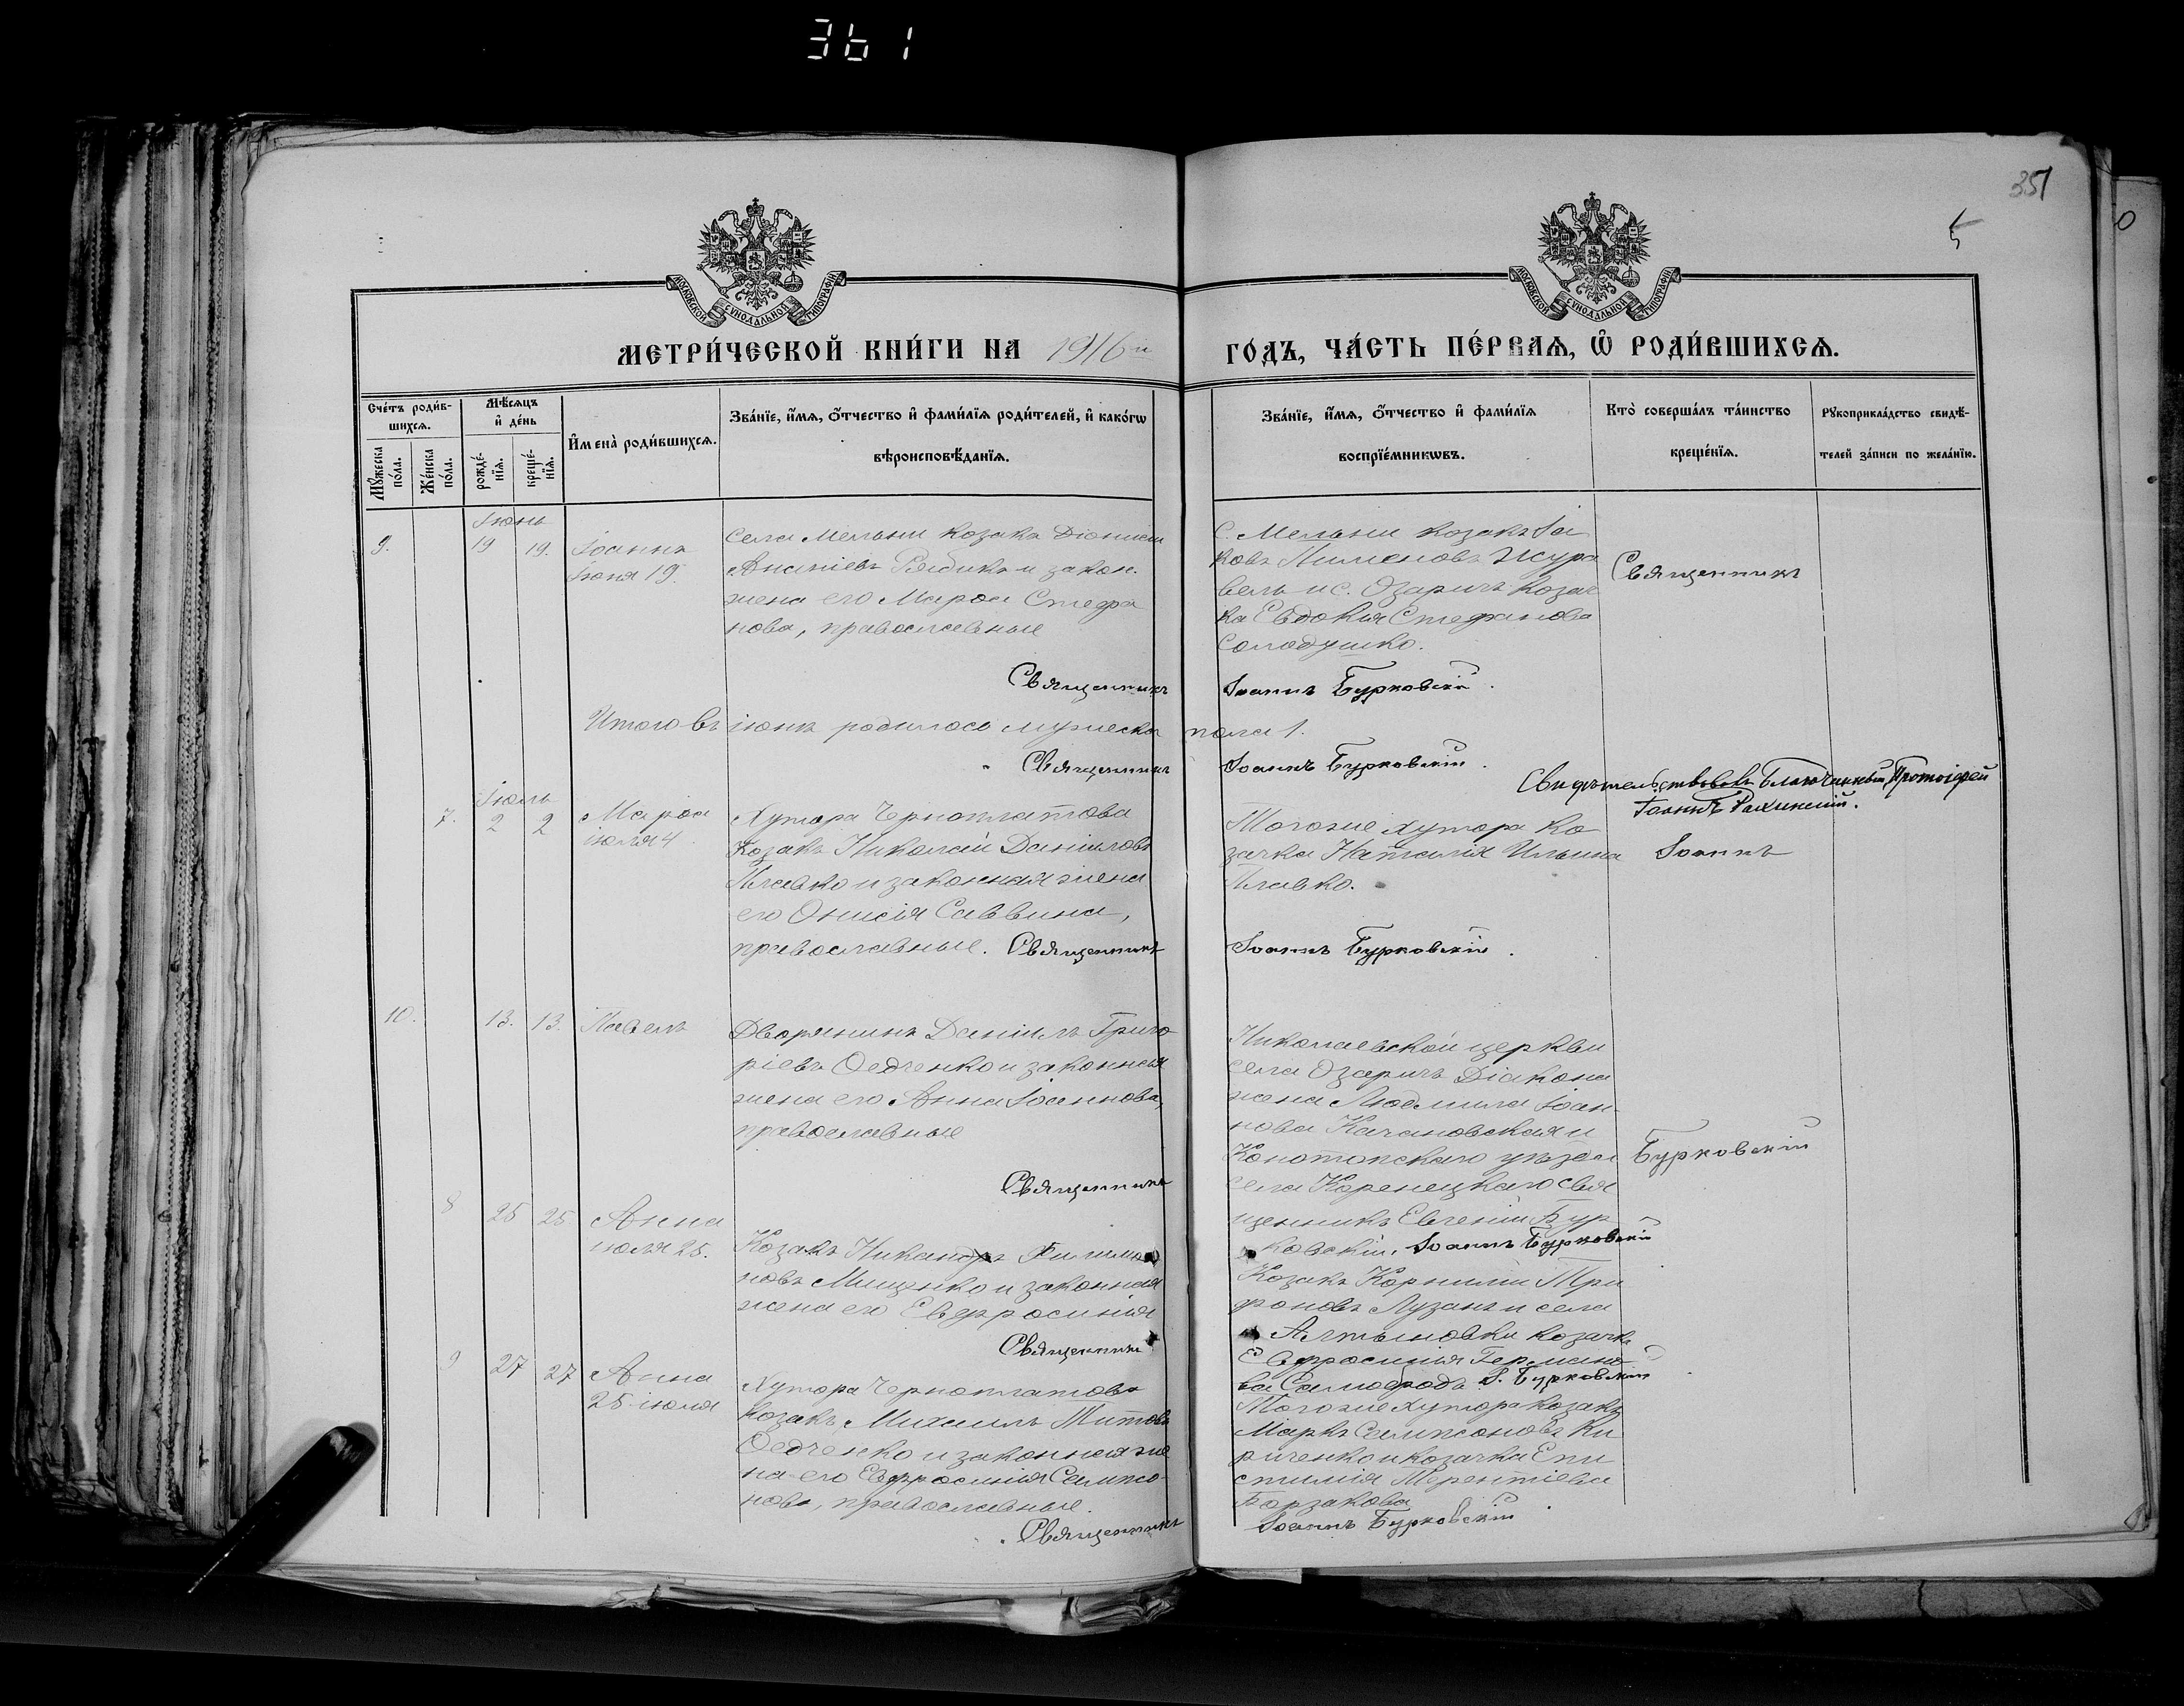 361
351
5
МОСКОВСКОЙ СѴНОДАЛЬНОЙ ТИПОГРАФІИ
МОСКОВСКОЙ СѴНОДАЛЬНОЙ ТИПОГРАФІИ
МЕТРИ́ЧЕСКОЙ КНИ́ГИ НА 1916й
ГО́ДЪ, ЧА́СТЬ ПЕ́РВАѦ, Ѡ҆ РОДИ́ВШИХСѦ.
Сче́тъ роди́в-
шихсѧ.
Мꙋ́жеска по́ла.
Же́нска по́ла.
Мѣ́сѧцъ
и҆ де́нь
рожде́-
нїѧ.
креще́-
нїѧ.
И҆мена̀ роди́вшихсѧ.
Зва́нїе, и҆́мѧ, ѻ҆́тчество и҆ фами́лїѧ роди́телей, и҆ како́гѡ
вѣроисповѣ́данїѧ.
Зва́нїе, и҆́мѧ, ѻ҆́тчество и҆ фами́лїѧ
воспрїе́мникѡвъ.
Кто̀ соверша́лъ та́инство
креще́нїѧ.
Рꙋкоприкла́дство свидѣ́-
телей за́писи по жела́нїю.
Іюнь
9. 19 19. Іоаннъ
Іюня 19.
села Мельни козакъ Діонисій
Ананіевъ Рябика и закон.
жена его Марѳа Стефа
нова, православные
С. Мельни козакъ Іа
ковъ Пименовъ Жура
вель и с. Озаричъ козач
ка Евдокія Стефанова
Солодушко.
Священникъ
Священникъ Іоаннъ Бурковскій.
Итого въ іюнѣ родилось мужеска пола 1.
Священникъ Іоаннъ Бурковскій.
Свидѣтельствовалъ Благочинный, Протоіерей
Іоаннъ
Іюль
7. 2 2 Марѳа
іюля 4
Хутора Черноплатова
Козакъ Николай Даніиловъ
Плавко и законная жена
его Онисія Саввина,
православные. Священникъ
Тогоже хутора ко
зачка Наталія Ильина
Плавко.
Іоаннъ
Іоаннъ Бурковскій.
10. 13. 13. Павелъ
Дворянинъ Даніилъ Григо
ріевъ Ѳедченко и законная
жена его Анна Іоаннова,
православные
Священникъ
Николаевской церкви
села Озаричъ Діакона
жена Людмила Іоан-
нова Качановская и
Конотопскаго уѣзда
села Коренецкаго свя
щенникъ Евгеній Бур
ковскій. Іоаннъ Бурковскій
Бурковскій
8 25 25. Анна
іюля 25.
Козакъ Никаноръ Филимо
новъ Мищенко и законная
жена его Евфросинія
Священникъ
Козакъ Корнилій Три
фоновъ Лузанъ и села
Алтыновки козачка
Евфросинія Германо
ва Самобродъ І. Бурковскій
9 27 27 Анна
25 іюля
Хутора Черноплатова
козакъ Михаилъ Титовъ
Ѳедченко и законная же
на его Евфросинія Сампсо
нова, православные.
Священникъ
Тогоже хутора козакъ
Маркъ Сампсоновъ Ки
риченко и козачка Епи
стимія Терентіева
Борзакова
Іоаннъ Бурковскій